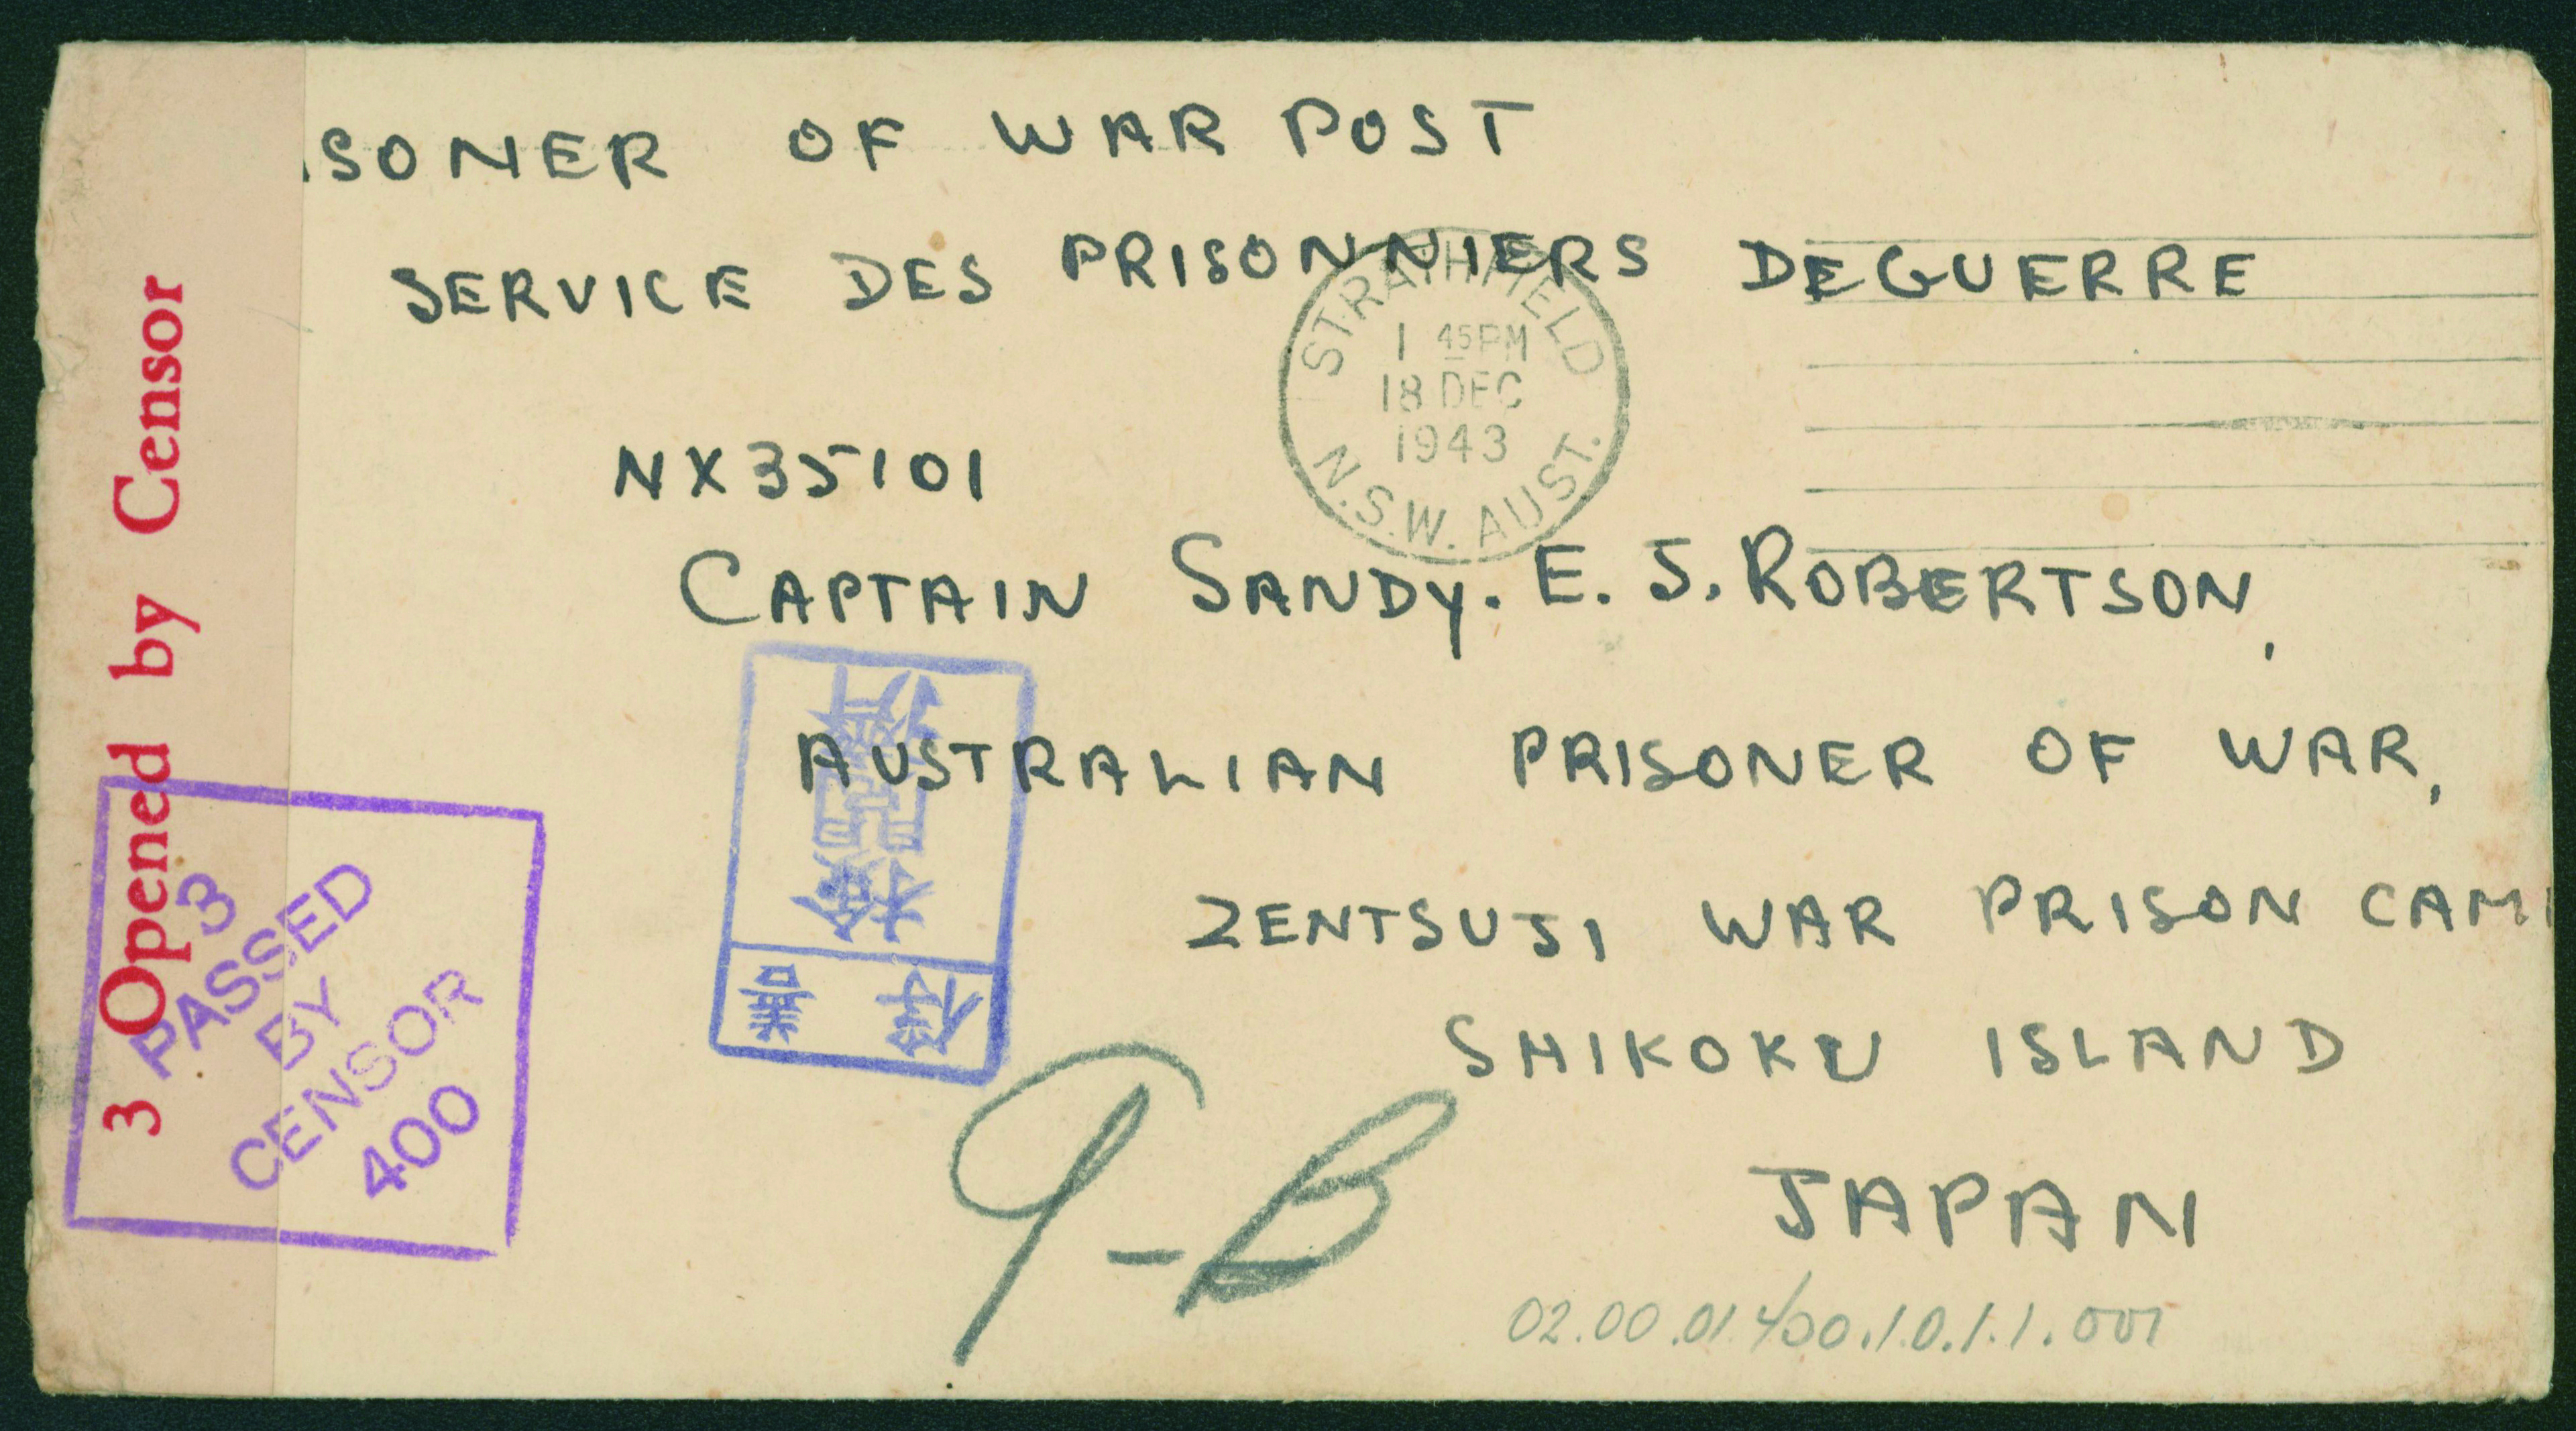 SONER OF WAR POST
SERVICE DES PRISONNIERS DEGUERRE
STRATHFIELD
1 45 PM
18 DEC
1943
N.S.W. AUST.
NX35101
CAPTAIN SANDY. E. J. ROBERTSON,
AUSTRALIAN PRISONER OF WAR,
ZENTSUJI WAR PRISON CAM
SHIKOKU ISLAND
JAPAN
3 Opened by Censor
3
PASSED
BY
CENSOR
400
善俘
檢閲濟
9-B
02.00.01.400.1.0.1.1.001